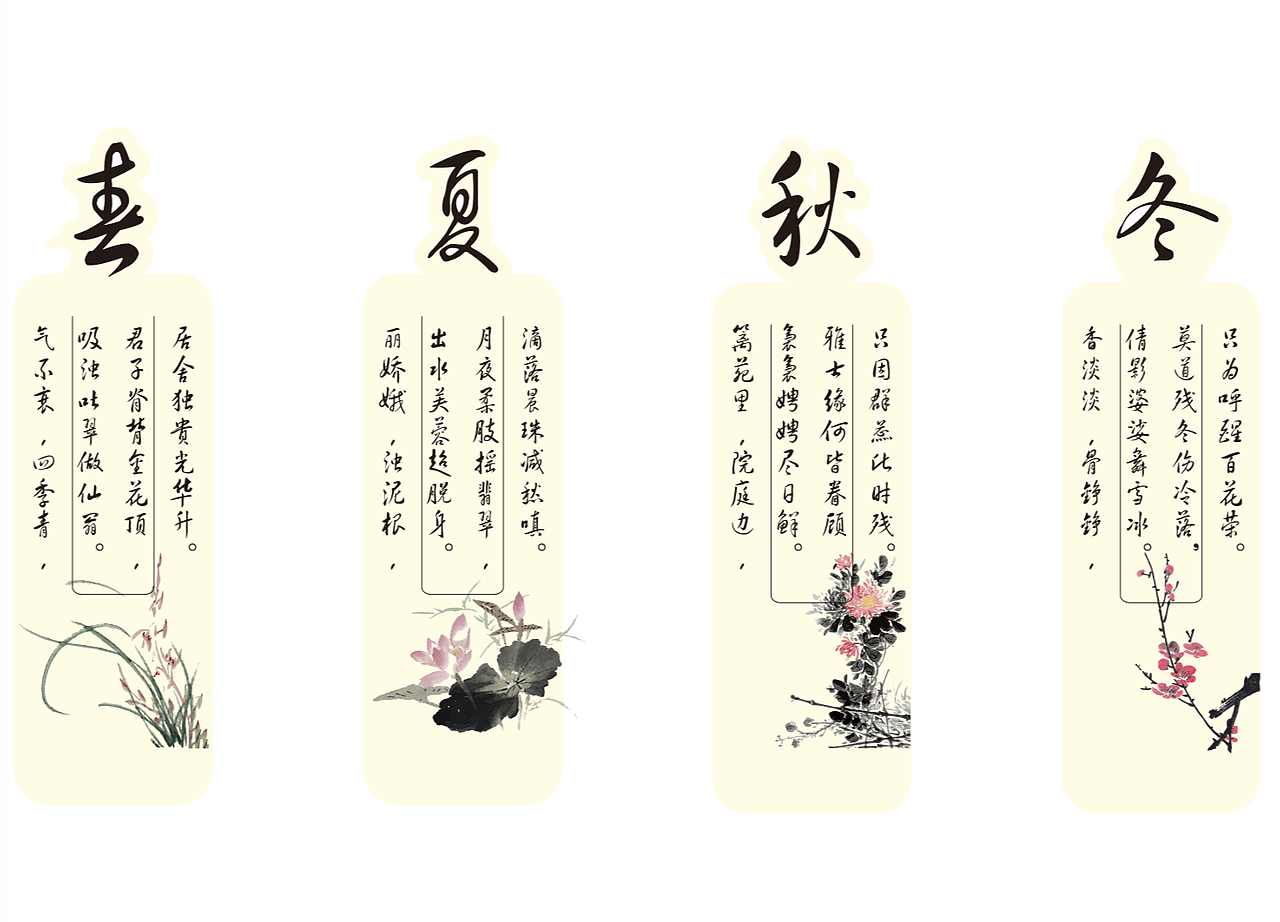 春
气不衰，四季青，
吸浊吐翠做仙翁。
君子脊背金花顶，
居舍独贵光华升。
夏
丽娇娥，浊泥根，
出水芙蓉超脱身。
月夜柔肢摇翡翠，
滴落晨珠减愁嗔。
秋
篱苑里，院庭边，
袅袅娉娉尽日鲜。
雅士缘何皆眷顾
只因群蕊此时残。
冬
香淡淡，骨铮铮，
倩影婆娑舞雪冰。
莫道残冬伤冷落，
只为呼醒百花荣。